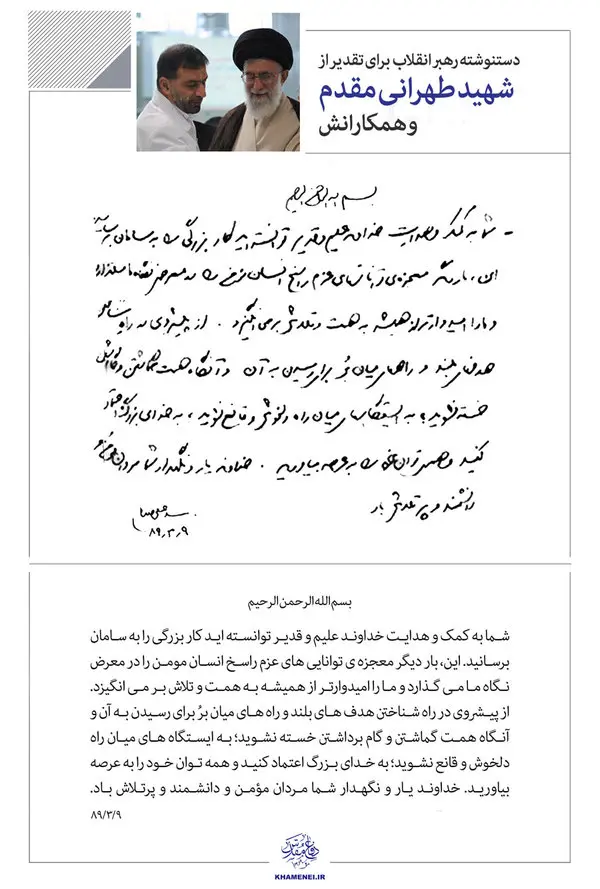 دستنوشته رهبر انقلاب برای تقدیر از
شهید طهرانی مقدم
و همکارانش
بسم الله الرحمن الرحیم
- شما به کمک و هدایت خداوند علیم و قدیر توانسته اید کار بزرگی را به سامان برسانید
این، بار دیگر معجزه‌ی توانایی های عزم راسخ انسان مومن را در معرض نگاه ما میگذارد
و ما را امیدوارتر از همیشه به همت و تلاش بر می انگیزد. از پیشروی در راه شناختن
هدفهای بلند و راههای میان بُر برای رسیدن به آن و آنگاه همت گماشتن و گام برداشتن
خسته نشوید؛ به ایستگاههای میان راه دلخوش و قانع نشوید، به خدای بزرگ اعتماد
کنید و همه توان خود را به عرصه بیاورید. خداوند یار و نگهدار شما مردان مؤمن و
دانشمند و پرتلاش باد
۸۹٫۳٫۹
بسم الله الرحمن الرحیم
شما به کمک و هدایت خداوند علیم و قدیر توانسته اید کار بزرگی را به سامان
برسانید. این، بار دیگر معجزه ی توانایی های عزم راسخ انسان مومن را در معرض
نگاه ما می گذارد و ما را امیدوارتر از همیشه به همت و تلاش بر می انگیزد.
از پیشروی در راه شناختن هدف های بلند و راه های میان بُر برای رسیدن به آن و
آنگاه همت گماشتن و گام برداشتن خسته نشوید؛ به ایستگاه های میان راه
دلخوش و قانع نشوید؛ به خدای بزرگ اعتماد کنید و همه توان خود را به عرصه
بیاورید. خداوند یار و نگهدار شما مردان مؤمن و دانشمند و پرتلاش باد.
۸۹/۳/۹
KHAMENEI.IR